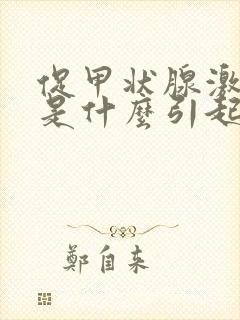 促甲状腺激
是什麼引起
鄭自来